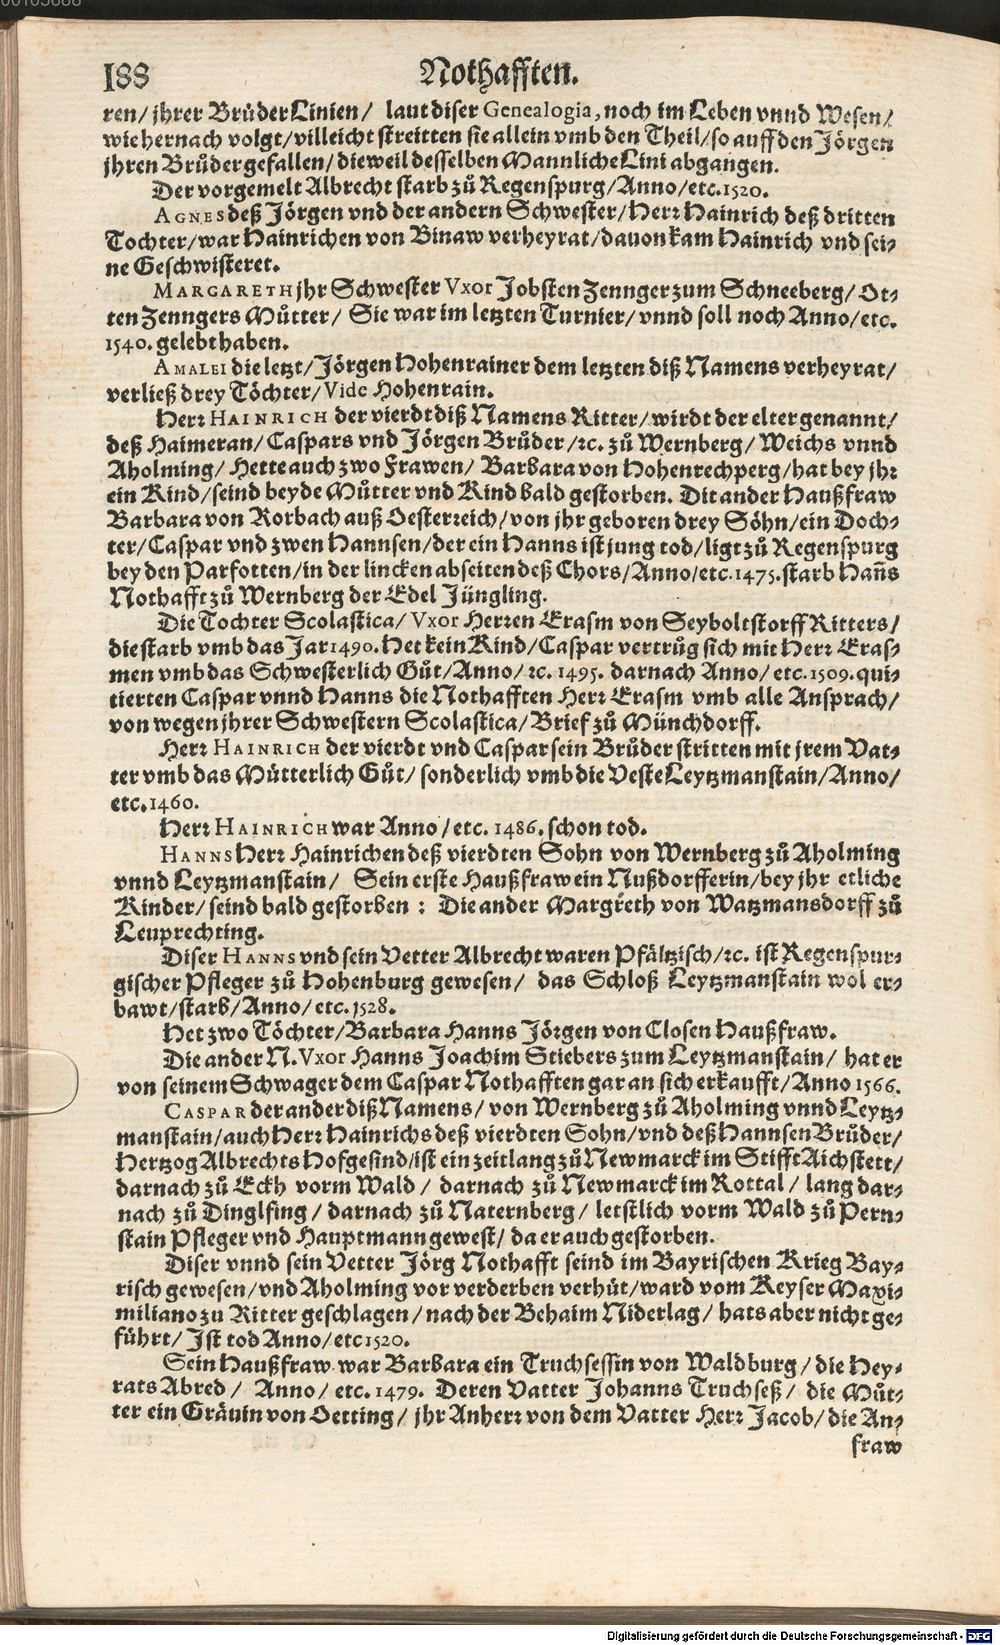 188 Nothafften.
ren/ jhrer Brüder Linien/ laut diser Genealogia, noch im Leben vnnd Wesen/
wie hernach volgt/ villeicht streitten sie allein vmb den Theil/ so auff den Jörgen
jhren Brůder gefallen/ dieweil desselben Mannliche Lini abgangen.
Der vorgemelt Albrecht starb zů Regenspurg/ Anno/ etc. 1520.
AGNES deß Jörgen vnd der andern Schwester/ Herr Hainrich deß dritten
Tochter/ war Hainrichen von Binaw verheyrat/ dauon kam Hainrich vnd sei-
ne Geschwisteret.
MARGARETH jhr Schwester Vxor Jobsten Zennger zum Schneeberg/ Ot-
ten Zenngers Můtter/ Sie war im letzten Turnier/ vnnd soll noch Anno/ etc.
1540. gelebt haben.
AMALEI die letzt/ Jörgen Hohenrainer dem letzten diß Namens verheyrat/
verließ drey Töchter/ Vide Hohenrain.
Herr HAINRICH der vierdt diß Namens Ritter/ wirdt der elter genannt/
deß Haimeran/ Caspars vnd Jörgen Brůder/ ꝛc. zů Wernberg/ Weichs vnnd
Aholming/ Hette auch zwo Frawen/ Barbara von Hohenrechperg/ hat bey jhr
ein Kind/ seind beyde Můtter vnd Kind bald gestorben. Dit ander Haußfraw
Barbara von Rorbach auß Oesterreich/ von jhr geboren drey Söhn/ ein Doch-
ter/ Caspar vnd zwen Hannsen/ der ein Hanns ist jung tod/ ligt zů Regenspurg
bey den Parfotten/ in der lincken abseiten deß Chors/ Anno/ etc. 1475. starb Han̄s
Nothafft zů Wernberg der Edel Jüngling.
Die Tochter Scolastica/ Vxor Herren Erasm von Seyboltstorff Ritters/
die starb vmb das Jar 1490. Het kein Kind/ Caspar vertrůg sich mit Herr Eras-
men vmb das Schwesterlich Gůt/ Anno/ ꝛc. 1495. darnach Anno/ etc. 1509. qui-
tierten Caspar vnnd Hanns die Nothafften Herr Erasm vmb alle Ansprach/
von wegen jhrer Schwestern Scolastica/ Brief zů Münchdorff.
Herr HAINRICH der vierdt vnd Caspar sein Brůder stritten mit jrem Vat-
ter vmb das Můtterlich Gůt/ sonderlich vmb die Veste Leytzmanstain/ Anno/
etc. 1460.
Herr HAINRICH war Anno/ etc. 1486. schon tod.
HANNS Herr Hainrichen deß vierdten Sohn von Wernberg zů Aholming
vnnd Leytzmanstain/ Sein erste Haußfraw ein Nußdorfferin/ bey jhr etliche
Kinder/ seind bald gestorben: Die ander Margreth von Watzmansdorff zů
Leuprechting.
Diser HANNS vnd sein Vetter Albrecht waren Pfältzisch/ ꝛc. ist Regenspur-
gischer Pfleger zů Hohenburg gewesen/ das Schloß Leytzmanstain wol er-
bawt/ starb/ Anno/ etc. 1528.
Het zwo Töchter/ Barbara Hanns Jörgen von Closen Haußfraw.
Die ander N. Vxor Hanns Joachim Stiebers zum Leytzmanstain/ hat er
von seinem Schwager dem Caspar Nothafften gar an sich erkaufft/ Anno 1566.
CASPAR der ander diß Namens/ von Wernberg zů Aholming vnnd Leytz-
manstain/ auch Herr Hainrichs deß vierdten Sohn/ vnd deß Hannsen Brůder/
Hertzog Albrechts Hofgesind/ ist ein zeitlang zů Newmarck im Stifft Aichstett/
darnach zů Eckh vorm Wald/ darnach zů Newmarck im Rottal/ lang dar-
nach zů Dinglfing/ darnach zů Naternberg/ letstlich vorm Wald zů Pern-
stain Pfleger vnd Hauptmann gewest/ da er auch gestorben.
Diser vnnd sein Vetter Jörg Nothafft seind im Bayrischen Krieg Bay-
risch gewesen/ vnd Aholming vor verderben verhüt/ ward vom Keyser Maxi-
miliano zu Ritter geschlagen/ nach der Behaim Niderlag/ hats aber nicht ge-
führt/ Ist tod Anno/ etc 1520.
Sein Haußfraw war Barbara ein Truchsessin von Waldburg/ die Hey-
rats Abred/ Anno/ etc. 1479. Deren Vatter Johanns Truchseß/ die Můt-
ter ein Grävin von Oetting/ jhr Anherr von dem Vatter Herr Jacob/ die An-
fraw
Digitalisierung gefördert durch die Deutsche Forschungsgemeinschaft - DFG